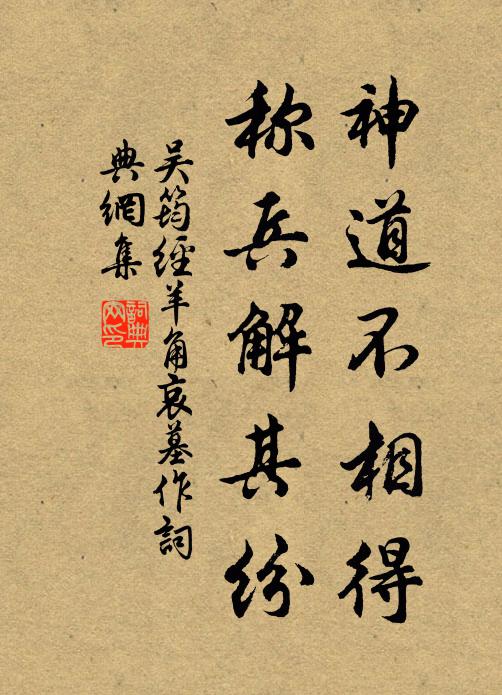 神道不相得
称兵解其纷
吴筠經羊角哀墓作詞
典網集
詞典網印